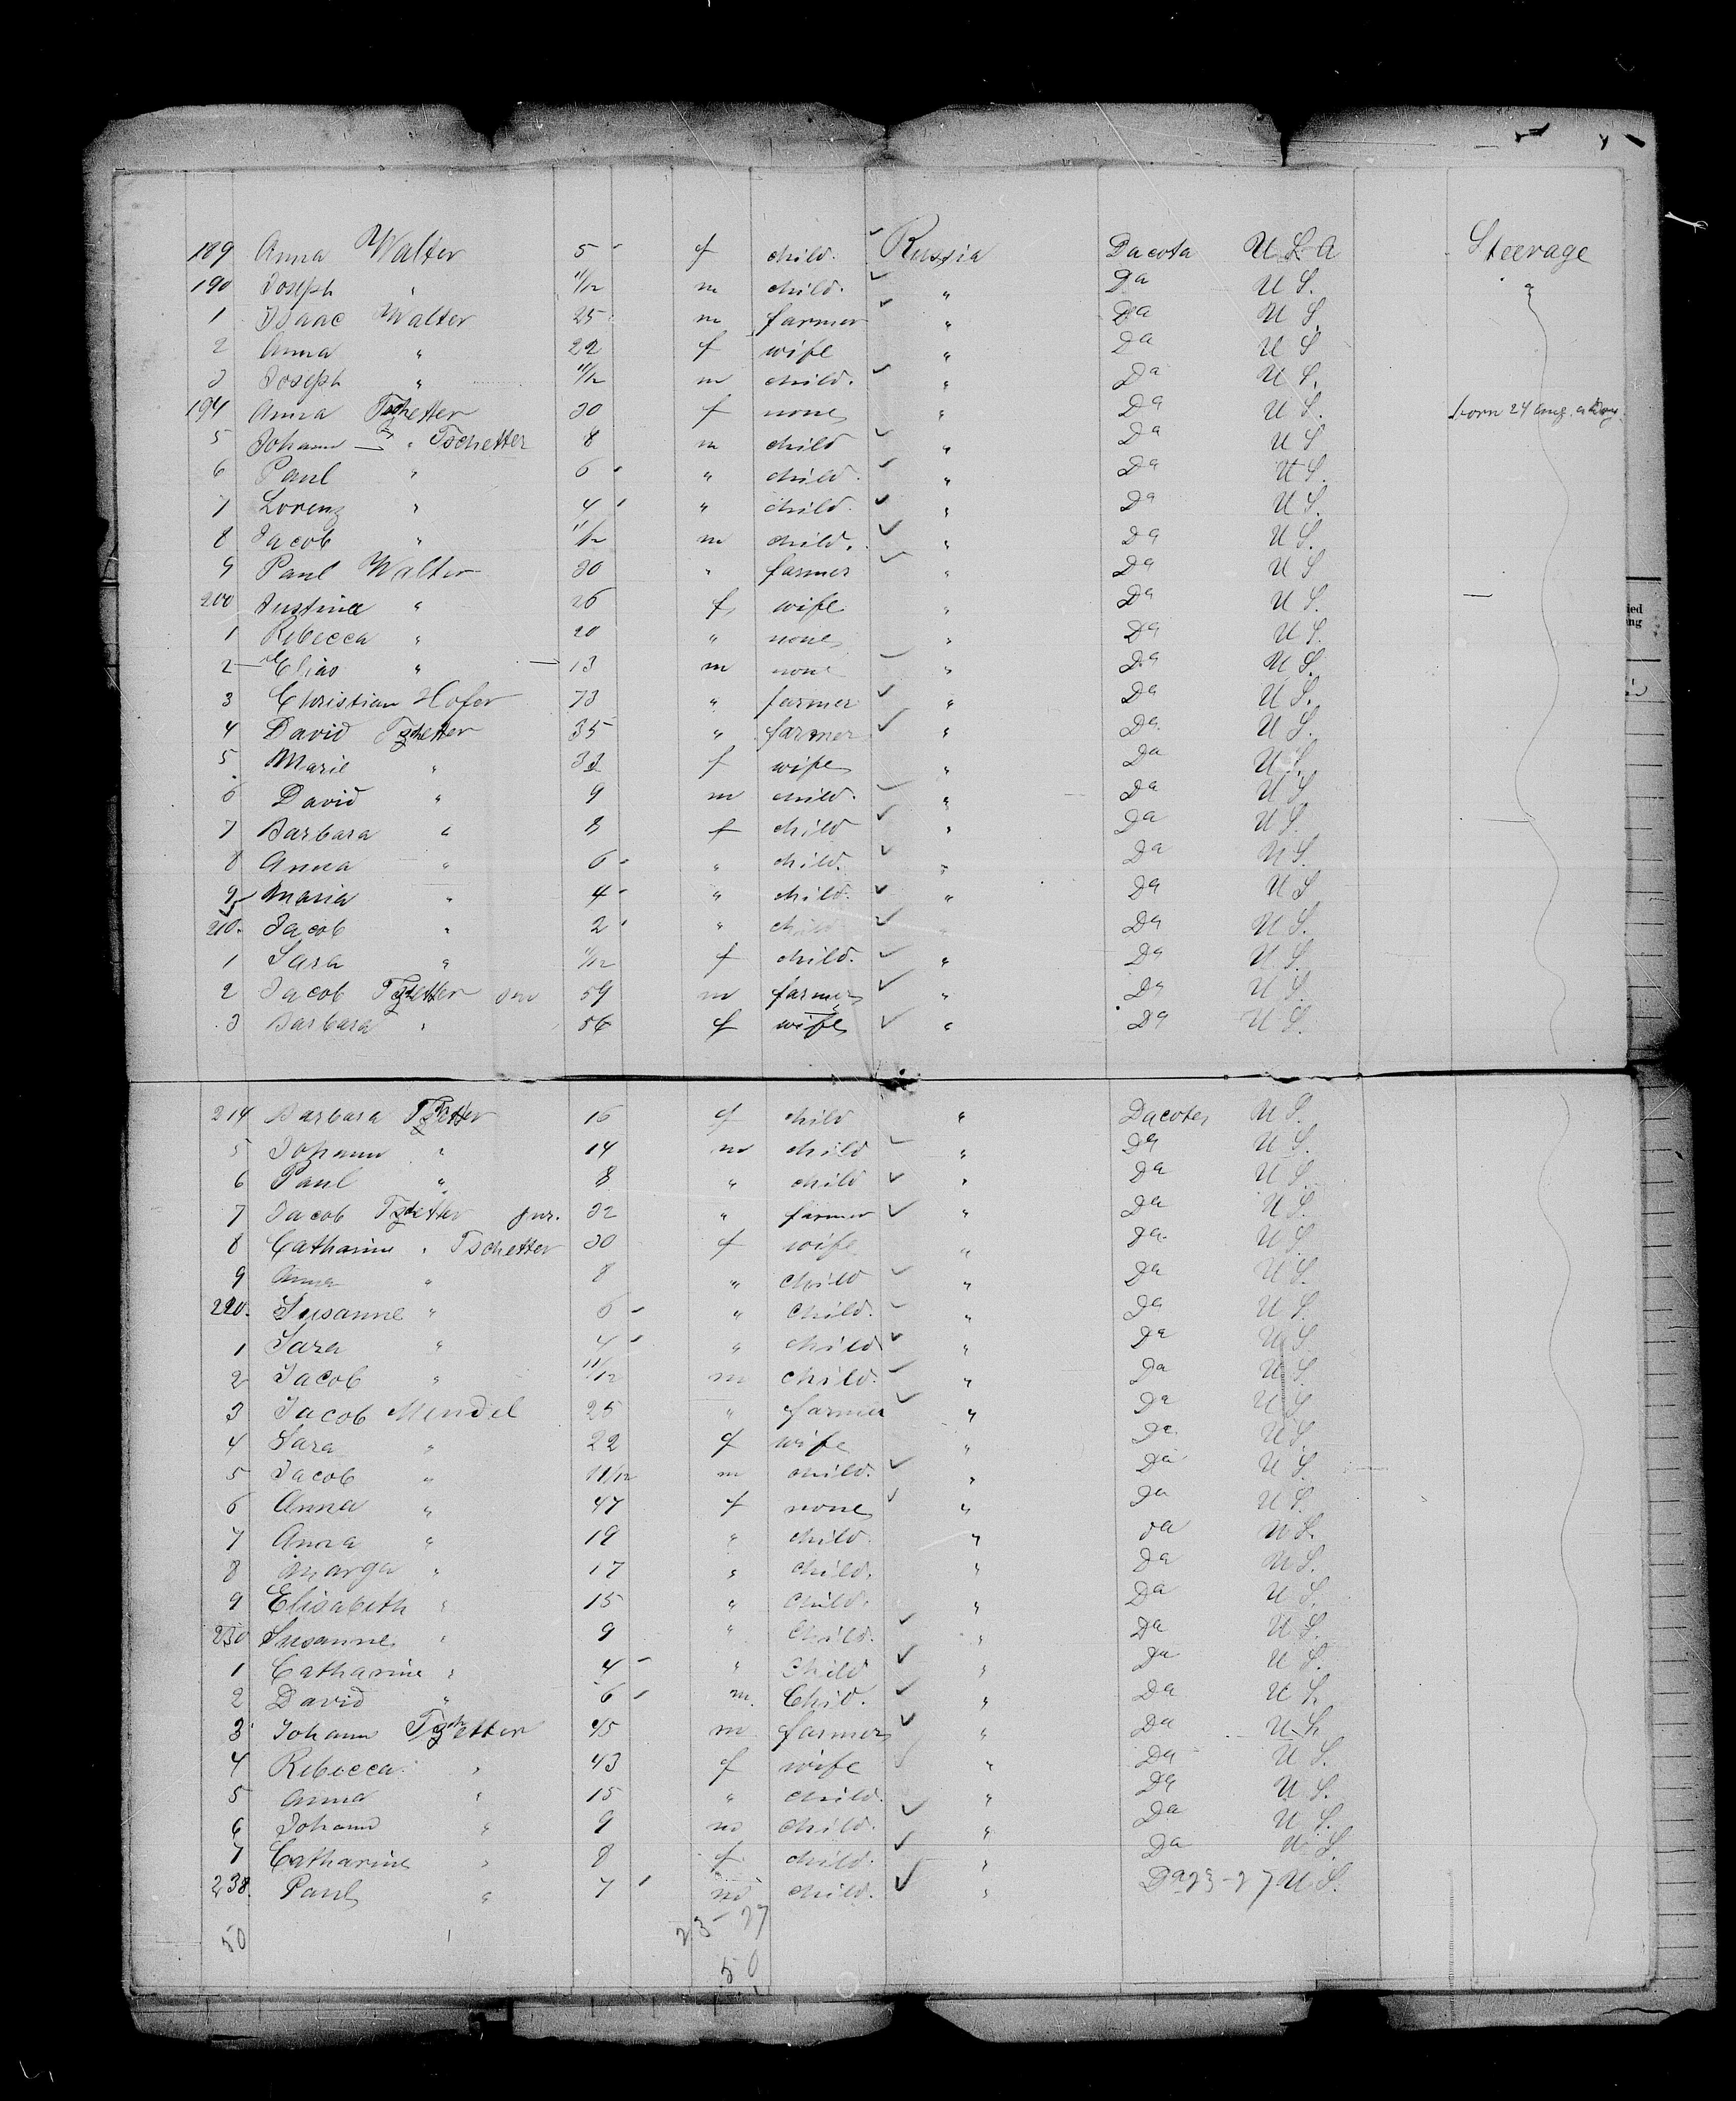 189 Anna Walter 5 f child. Russia Dacota U.S.A Steerage
190 Joseph " 11/12 m child. " Da U S. "
1 Isaac Walter 25 m farmer " Da U S.
2 Anna " 22 f wife " Da U S
3 Joseph " 11/12 m child. " Da U S.
194 Anna Tschetter 30 f none " Da U S. born 24 Aug.
5 Johann " Tschetter 8 m child " Da U S
6 Paul " 6 " child. " Da U S.
7 Lorenz " 4 " child. " Da U S.
8 Jacob " 11/12 m child. " Da U S.
9 Paul Walter 30 " farmer " Da U S
200 Justina " 26 f wife " Da U S.
1 Rebecca " 20 " none " Da U S.
2 Elias " 13 m none " Da U S.
3 Christian Hofer 73 " farmer " Da U S.
4 David Tschetter 35 " farmer " Da. U S.
5 Marie " f wife " Da U S.
6 David " 9 m child. " Da U S
7 Barbara " 8 f child " Da U S.
8 Anna " 6 " child. " Da U S.
9 Maria " 4 " child. " Da U S
210. Jacob " 2 " child " Da U S.
1 Sara " 11/12 f child. " Da U S.
2 Jacob Tschetter sen 59 m farmer " Da U S.
3 Barbara " 56 f wife " Da U S.
214 Barbara Tschetter 16 f child " Dacota U S.
5 Johann " 14 m child " Da U S.
6 Paul " 8 " child " Da U S.
7 Jacob Tschetter jun. 32 " farmer " Da U S.
8 Catharine " Tschetter 30 f wife " Da. U S.
9 Anna " 8 " child " Da U S.
220. Susanne " 6 " Child. " Da U S.
1 Sara " 4 " child " Da U S.
2 Jacob " 11/12 m child. " Da U S.
3 Jacob Mendel 25 " farmer " Da U S
4 Sara " 22 f wife " Da. U S.
5 Jacob " 11/12 m child. " Da U S.
6 Anna " 47 f none " Da U S.
7 Anna " 19 " child. " Da U S.
8 Marga " 17 " child. " Da U S.
9 Elisabeth " 15 " child. " Da U S.
230 Susanne " 9 " Child. " Da U S.
1 Catharine " 4 " Child " Da U S.
2 David " 6 m. Chid. " Da U S.
3 Johann Tschetter 45 m farmer " Da U S.
4 Rebecca " 43 f wife " Da U S.
5 Anna " 15 " child. " Da U S.
6 Johann " 9 m child. " Da U S.
7 Catharine " 8 f child. " Da U S.
238. Paul " 7 m child. " Da 23-27 U S.
50 23-27
50